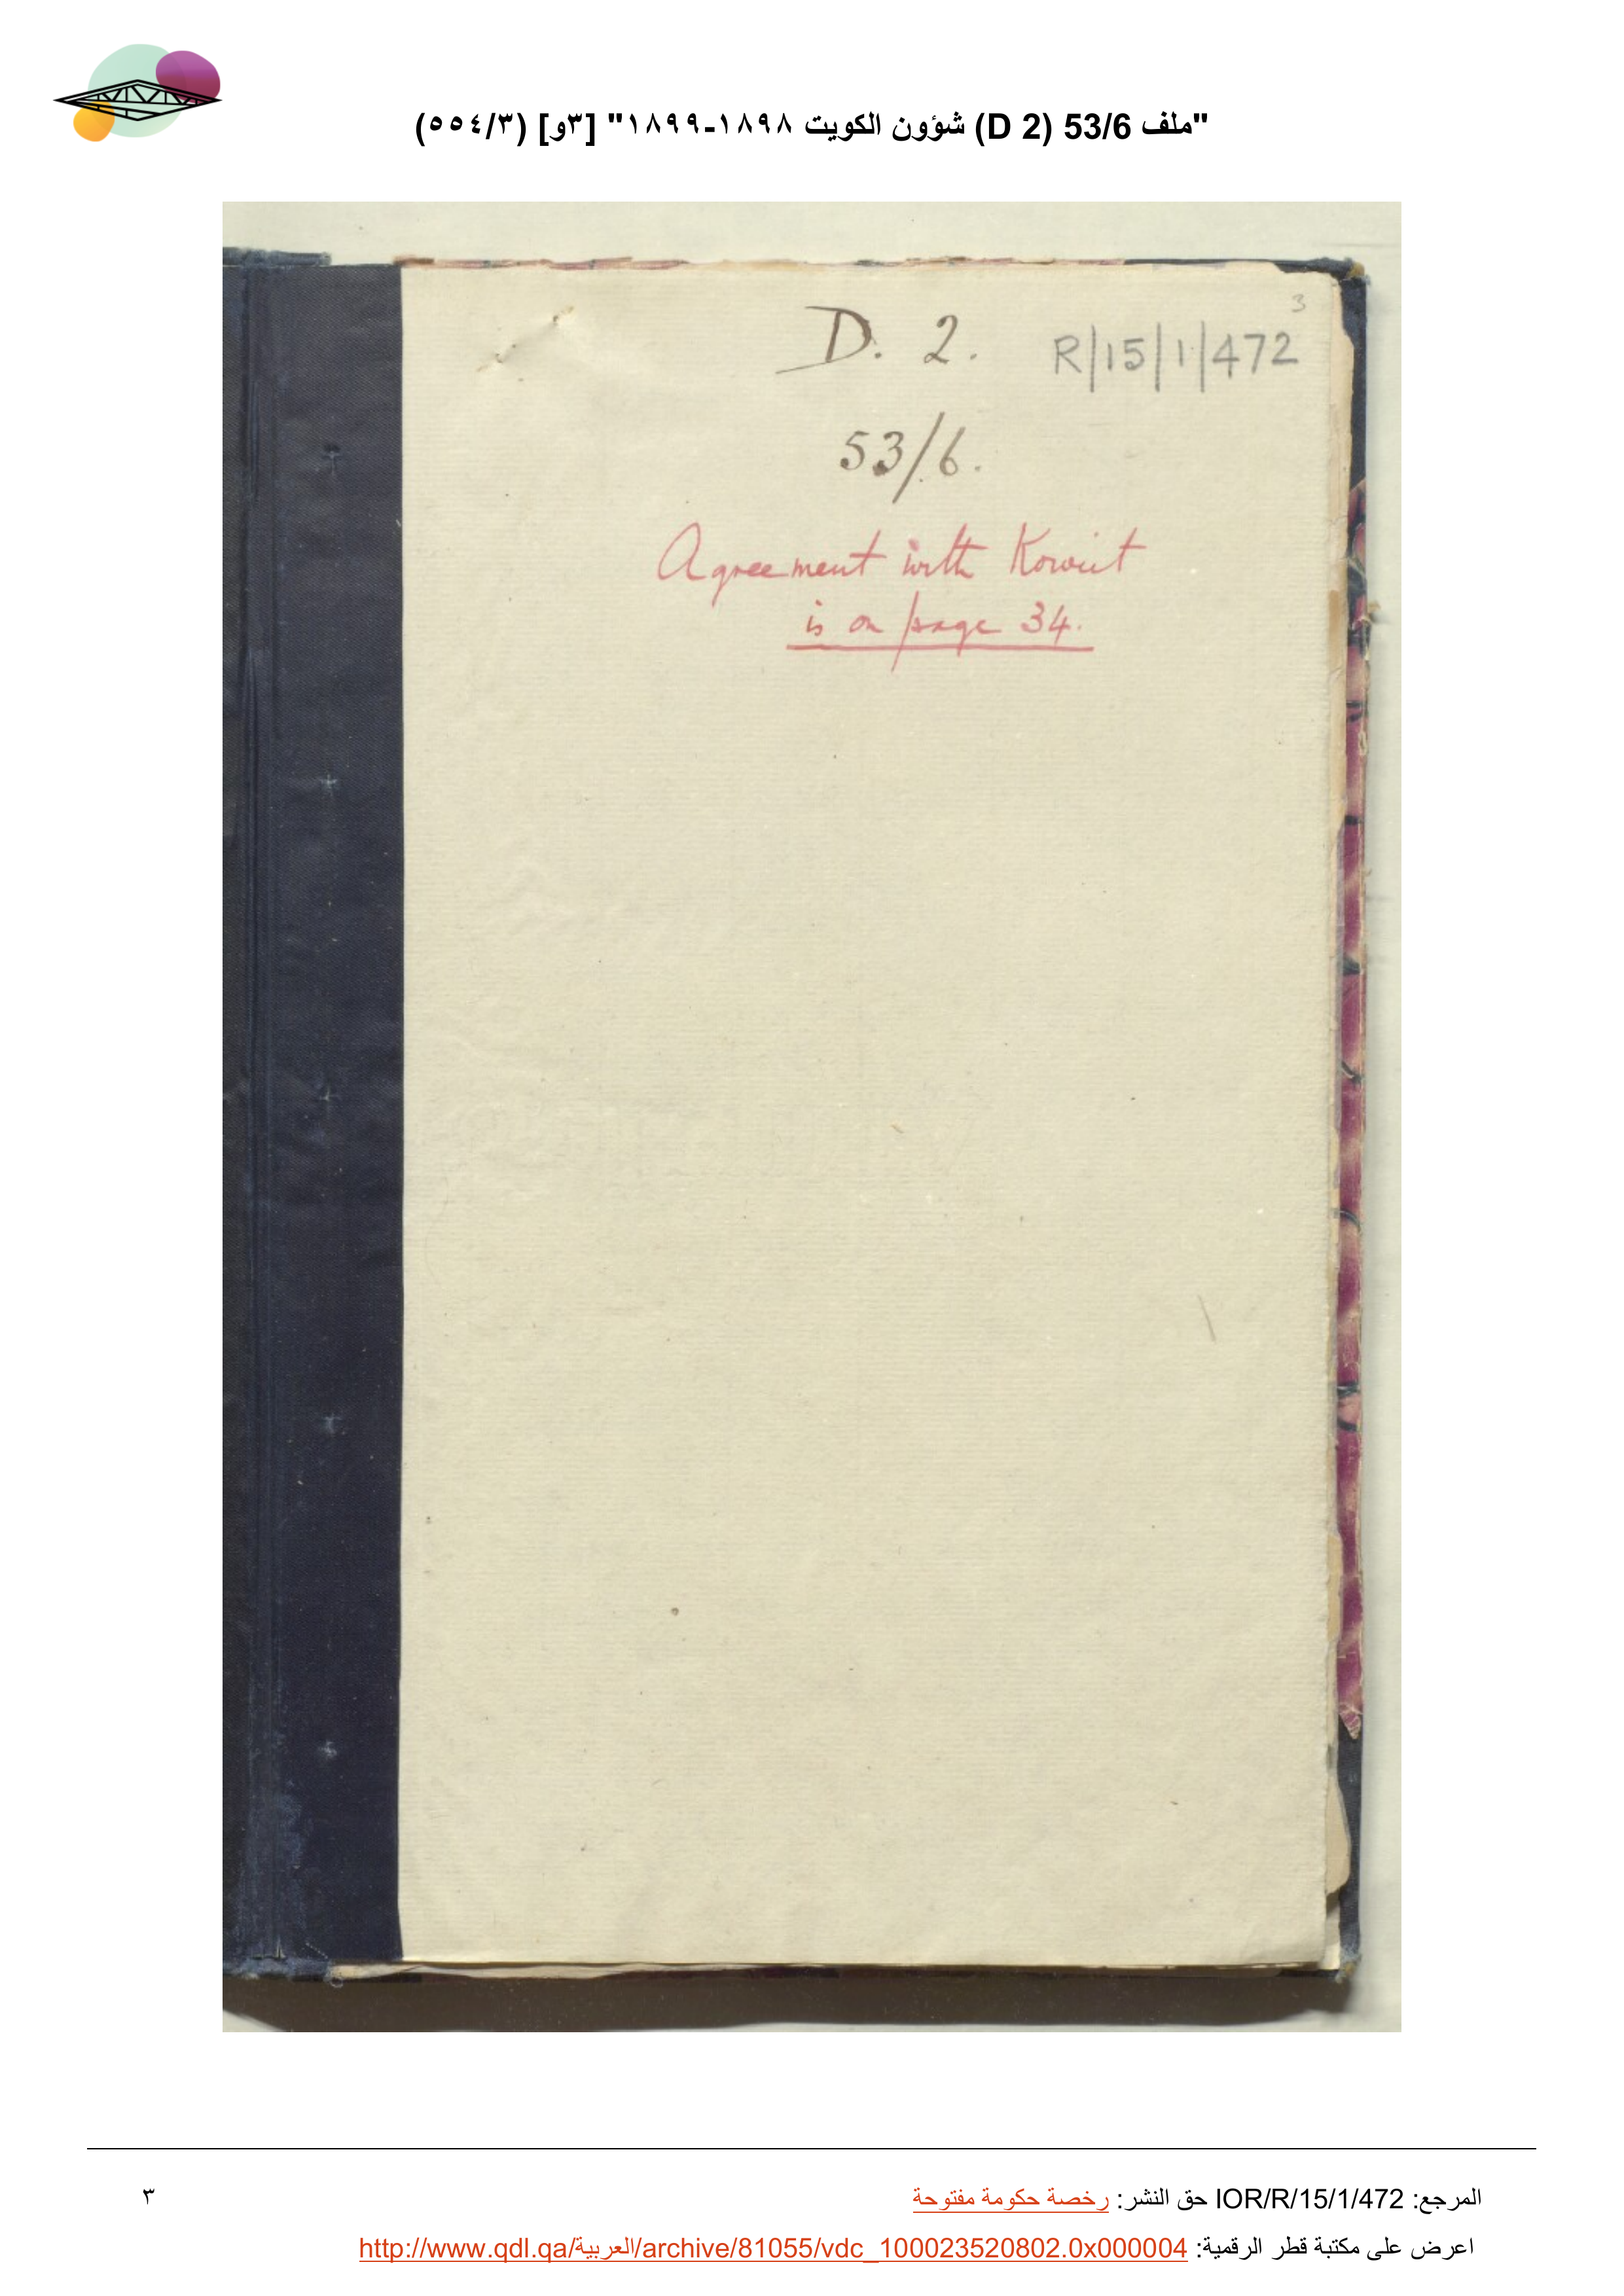 "ملف 53/6 (D 2) شؤون الكويت ١٨٩٨-١٨٩٩" [٣و] (٥٥٤/٣)
3
D. 2. R/15/1/472
53/6.
Agreement with Koweit
is on page 34.
المرجع: IOR/R/15/1/472 حق النشر: رخصة حكومة مفتوحة
٣
اعرض على مكتبة قطر الرقمية: http://www.qdl.qa/العربية/archive/81055/vdc_100023520802.0x000004